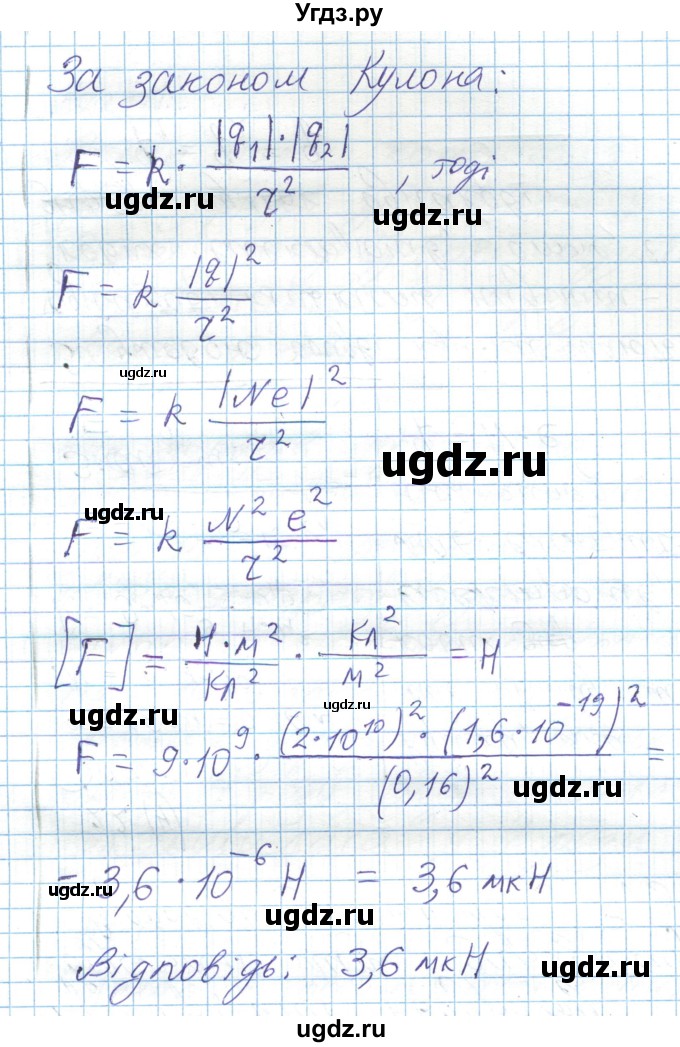 Угдз.ру
За законом Кулона:
F = k · |q₁|·|q₂| / r² , тоді
ugdz.ru ugdz.ru
F = k |q|² / r²
ugdz.ru
F = k |Ne|² / r²
ugdz.ru
ugdz.ru
F = k N² e² / r²
[F] = Н·м² / Кл² · Кл² / м² = Н
ugdz.ru ugdz.ru
F = 9·10⁹ · (2·10¹⁰)² · (1,6·10⁻¹⁹)² / (0,16)² =
ugdz.ru
= 3,6 · 10⁻⁶ Н = 3,6 мкН
ugdz.ru
ugdz.ru
Відповідь: 3,6 мкН
ugdz.ru
ugdz.ru